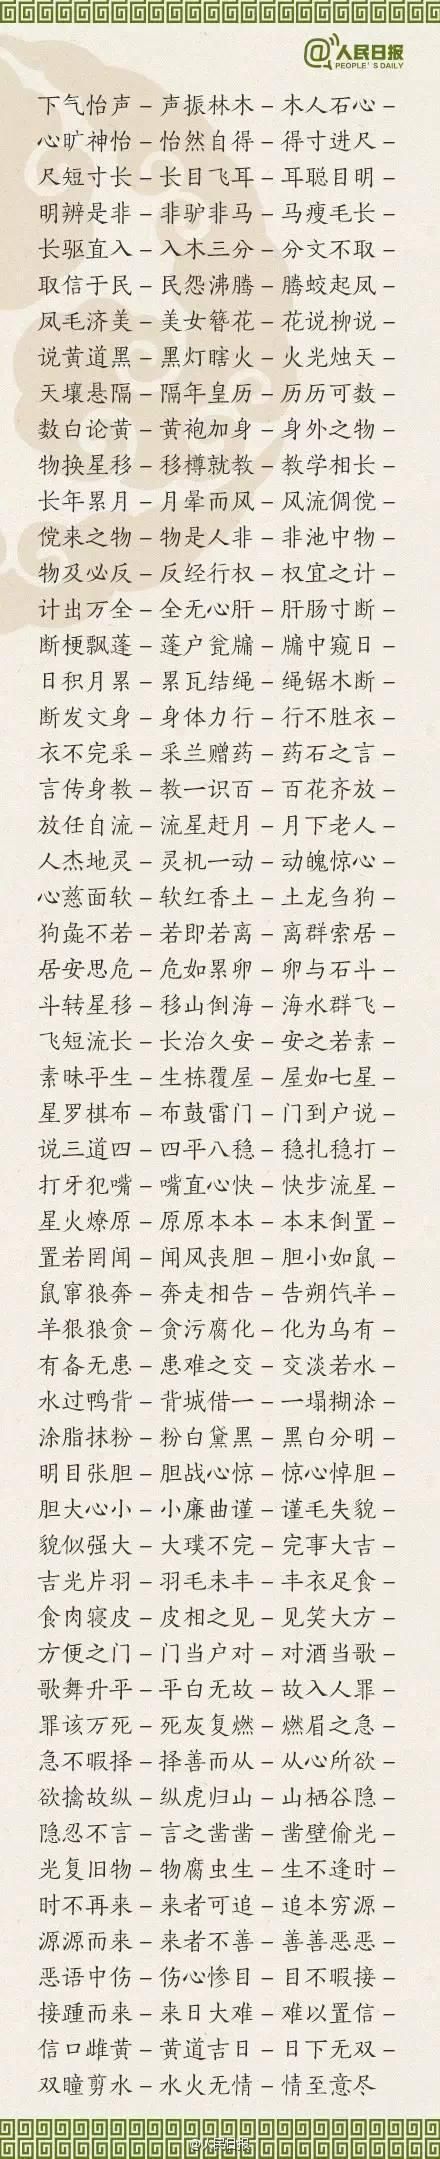 @人民日报
PEOPLE'S DAILY
下气怡声－声振林木－木人石心－
心旷神怡－怡然自得－得寸进尺－
尺短寸长－长目飞耳－耳聪目明－
明辨是非－非驴非马－马瘦毛长－
长驱直入－入木三分－分文不取－
取信于民－民怨沸腾－腾蛟起凤－
凤毛济美－美女簪花－花说柳说－
说黄道黑－黑灯瞎火－火光烛天－
天壤悬隔－隔年皇历－历历可数－
数白论黄－黄袍加身－身外之物－
物换星移－移樽就教－教学相长－
长年累月－月晕而风－风流倜傥－
傥来之物－物是人非－非池中物－
物及必反－反经行权－权宜之计－
计出万全－全无心肝－肝肠寸断－
断梗飘蓬－蓬户瓮牖－牖中窥日－
日积月累－累瓦结绳－绳锯木断－
断发文身－身体力行－行不胜衣－
衣不完采－采兰赠药－药石之言－
言传身教－教一识百－百花齐放－
放任自流－流星赶月－月下老人－
人杰地灵－灵机一动－动魄惊心－
心慈面软－软红香土－土龙刍狗－
狗彘不若－若即若离－离群索居－
居安思危－危如累卵－卵与石斗－
斗转星移－移山倒海－海水群飞－
飞短流长－长治久安－安之若素－
素昧平生－生栋覆屋－屋如七星－
星罗棋布－布鼓雷门－门到户说－
说三道四－四平八稳－稳扎稳打－
打牙犯嘴－嘴直心快－快步流星－
星火燎原－原原本本－本末倒置－
置若罔闻－闻风丧胆－胆小如鼠－
鼠窜狼奔－奔走相告－告朔饩羊－
羊狠狼贪－贪污腐化－化为乌有－
有备无患－患难之交－交淡若水－
水过鸭背－背城借一－一塌糊涂－
涂脂抹粉－粉白黛黑－黑白分明－
明目张胆－胆战心惊－惊心悼胆－
胆大心小－小廉曲谨－谨毛失貌－
貌似强大－大璞不完－完事大吉－
吉光片羽－羽毛未丰－丰衣足食－
食肉寝皮－皮相之见－见笑大方－
方便之门－门当户对－对酒当歌－
歌舞升平－平白无故－故入人罪－
罪该万死－死灰复燃－燃眉之急－
急不暇择－择善而从－从心所欲－
欲擒故纵－纵虎归山－山栖谷隐－
隐忍不言－言之凿凿－凿壁偷光－
光复旧物－物腐虫生－生不逢时－
时不再来－来者可追－追本穷源－
源源而来－来者不善－善善恶恶－
恶语中伤－伤心惨目－目不暇接－
接踵而来－来日大难－难以置信－
信口雌黄－黄道吉日－日下无双－
双瞳剪水－水火无情－情至意尽
@人民日报